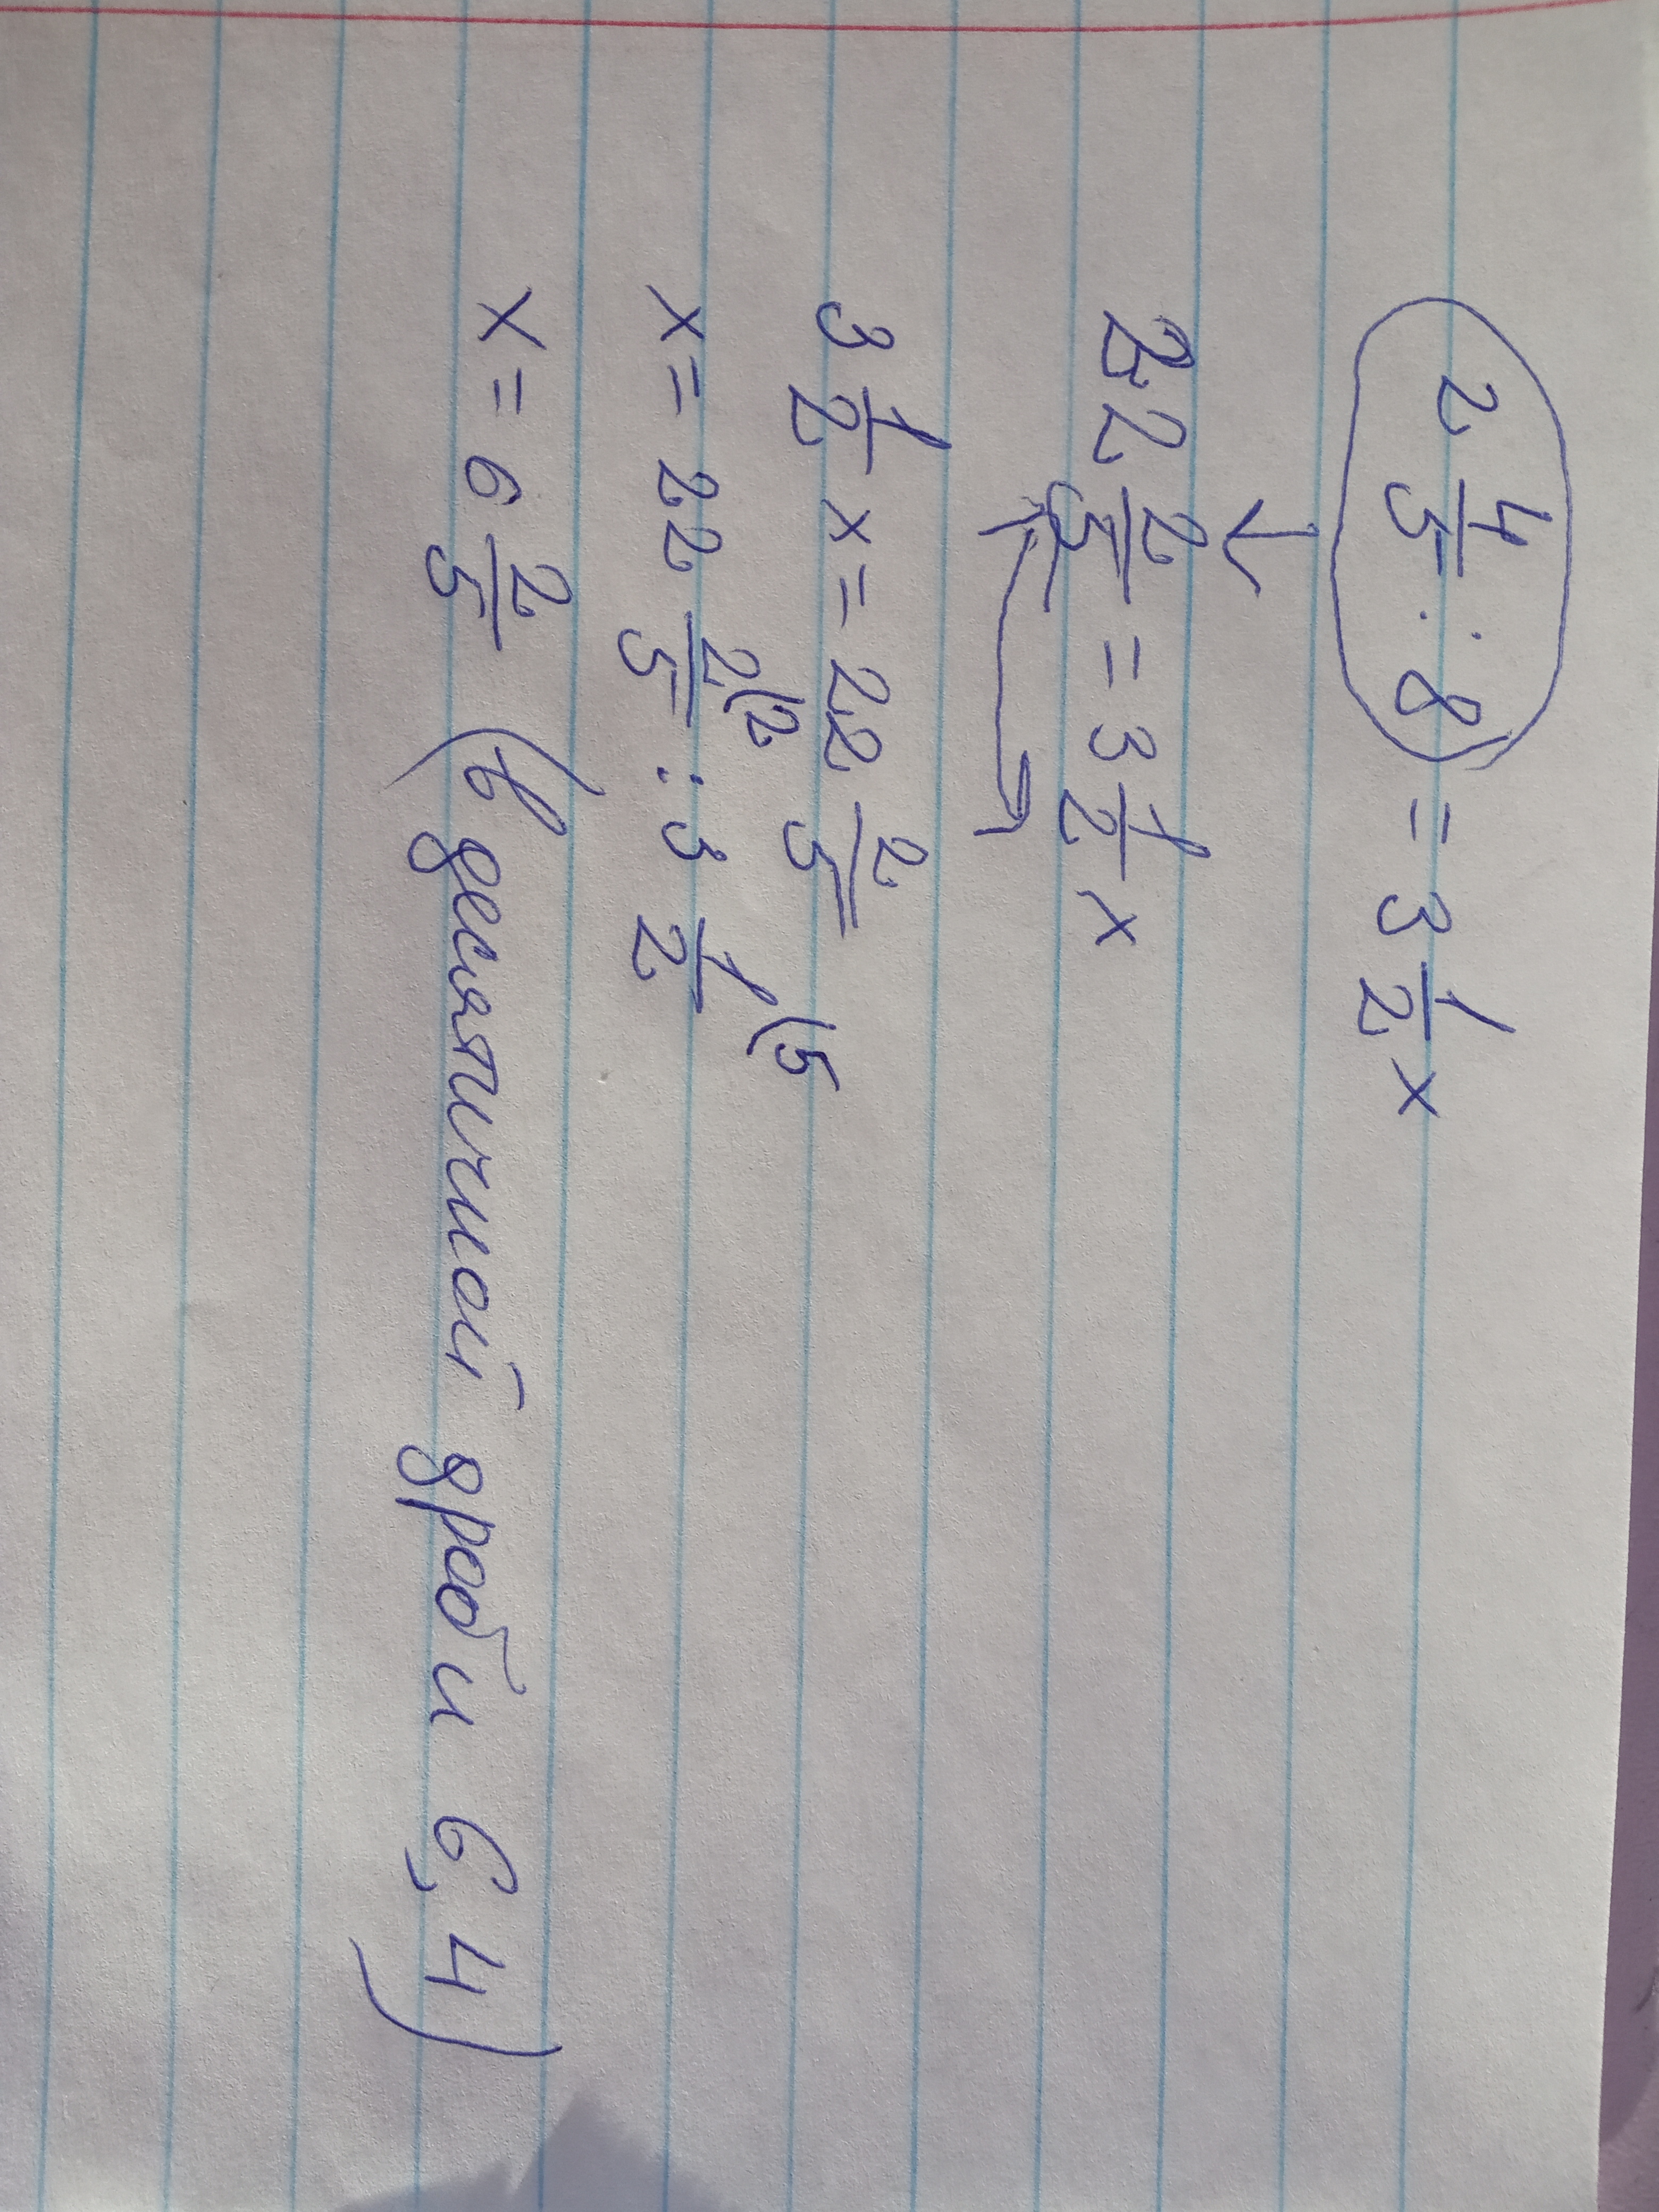 2 4/5 · 8 = 3 1/2 x
22 2/5 = 3 1/2 x
3 1/2 x = 22 2/5
x = 22 2/5 (2 : 3 1/2 (5
x = 6 2/5 (в десятичной дроби 6,4)